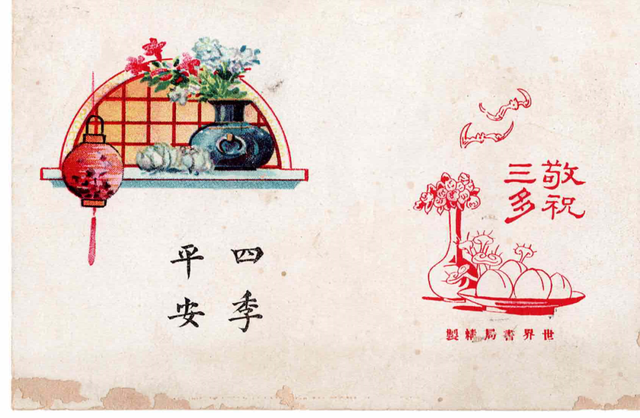 敬祝
三多
世界書局製
四季
平安